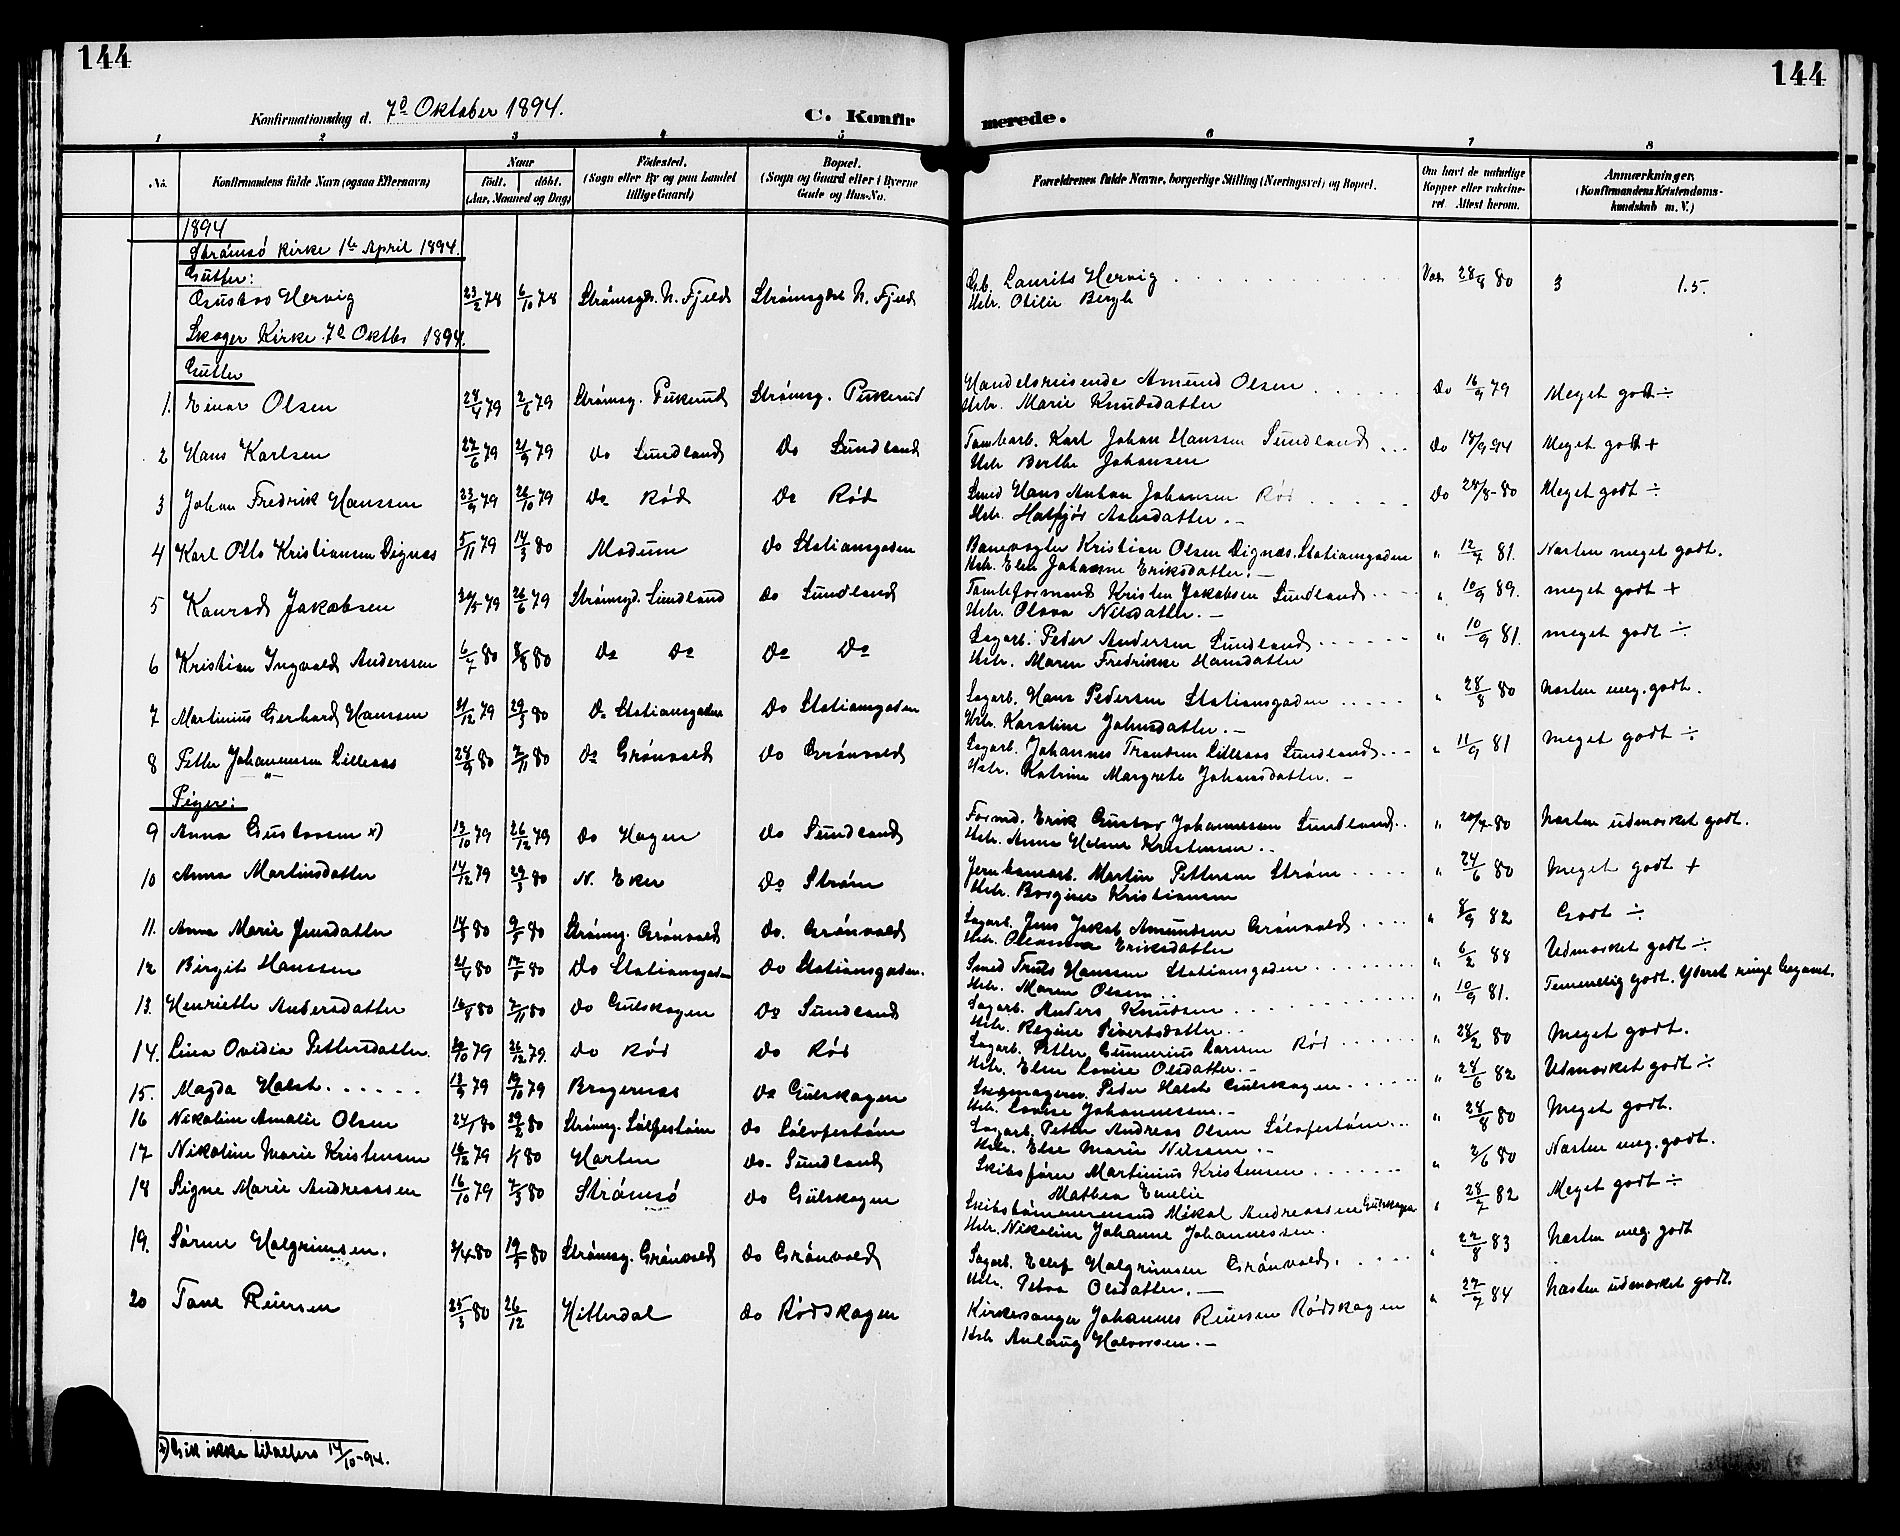 144
144
Konfirmationsdag d. 7de Oktober 1894.
C. Konfirmerede.
1 2 3 4 5 6 7 8
No. Konfirmandens fulde Navn (ogsaa Efternavn) Naar født. døbt. (Aar, Maaned og Dag) Fødested. (Sogn eller By og paa Landet tillige Gaard) Bopæl. (Sogn og Gaard eller i Byerne Gade og Hus-No. Forældrenes fulde Navne, borgerlige Stilling (Næringsvei) og Bopæl. Om havt de naturlige Kopper eller vaccineret Attest herom. Anmærkninger. (Konfirmandens Kristendomskundskab m. V.)
1894
Strømsø Kirke 1ste April 1894.
Gutter:
Gustav Hervig 23/2 78 6/10 78 Strømsgds. N. Fjeld Strømsgds. N. Fjeld Gb. Laurits Hervig Vac. 28/8 80 3 1.5.
Hstr. Otilie Bergh
Skoger Kirke 7de Oktbr 1894.
Gutter
1. Einar Olsen 24/4 79 2/6 79 Strømsg. Pukerud Strømsg. Pukerud Handelsreisende Amund Olsen Do 16/9 79 Meget godt ÷
Hstr. Marie Knudsdatter
2 Hans Karlsen 27/6 79 21/9 79 do Sundland Do Sundland Tomtearb. Karl Johan Hanssen Sundland Do 18/9-94 Meget godt +
Hstr Berthe Johansen
3 Johan Fredrik Hanssen 23/9 79 26/10 79 Do Rød Do Rød Smed Hans Anton Johansen Rød Do 28/8-80 Meget godt ÷
Hstr. Halfjør Aslesdatter.-
4 Karl Otto Kristiansen Dignæs 5/11 79 14/3 80 Modum Do Stationsgaden Banevogter Kristian Olsen Dignæs. Stationsgaden " 12/7 81. Næsten meget godt.
Hstr. Elen Johanne Eriksdatter.-
5 Konrad Jakobsen 24/5 79 26/6 79 Strømsgd. Sundland do Sundland Tomteformand Kristen Jakobsen Sundland " 10/9 89. meget godt +
Hstr. Olava Nilsdatter.-
6 Kristian Ingvald Anderssen 6/7 80 8/8 80 Do Do Do Do Sagarb. Peder Andersen Sundland " 10/9 81. meget godt ÷
Hstr. Maren Fredrikke Hansdatter
7 Martinius Gerhard Hanssen 21/12 79 29/3 80 Do Stationsgaden Do Stationsgaden Sagarb. Hans Pedersen Stationsgaden " 28/8 80 Næsten meg. godt.
Hstr. Karoline Johnsdatter.-
8 Petter Johannessen Lilleaas 24/9 80 7/11 80 Do Grønvold Do Grønvold Sagarb. Johannes Trondsen Lilleaas Sundland " 11/9 81 meget godt ÷
Hstr. Katrine Margrete Johansdatter.-
Piger:
9 Anna Gustavsen x) 13/10 79 26/12 79 do Hagen do Sundland Formd. Erik Gustav Johannessen Sundland " 20/7-80 Næsten udmærket godt.
Hstr. Anna Helene Kristensen.-
10 Anna Martinsdatter 14/12 79 29/3 80 N. Eker Do Strøm Jernbanearb. Martin Pettersen Strøm " 24/6 80 Meget godt +
Hstr. Borgine Kristiansen
11. Anna Marie Jensdatter 80 80 Strømsg. Grønvold do. Grønvold Sagarb. Jens Jakob Amundsen Grønvold " 8/9 82 Godt ÷
Hstr. Oleanna Eriksdatter
12 Birgit Hanssen 21/4 80 80 Do Stationsgaden Do Stationsgaden. Smed Truls Hanssen Stationsgaden " 6/2 88 Udmærket godt ÷
Hstr. Maren Olsen
13. Henriette Andersdatter 16/8 80 7/11 80 do Gulskogen Do Sundland Sagarb. Anders Knudsen " 10/9 81. Temmelig godt. Yderst ringe begavet.
Hstr. Regine Sivertsdatter.-
14. Lina Ovidia Pettersdatter. 79 26/12 79 do Rød Do Rød Sagarb. Petter Gunnerius Larssen Rød " 28/2 80 Meget godt.
Hstr. Elen Lovise Olsdatter.-
15. Magda Holst 13/9 79 19/10 79 Bragernæs Do Gulskogen Skomagersv. Peder Holst Gulskogen " 28/6 82 Udmærket godt ÷
Hstr. Lovise Johannessen.-
16 Nikoline Amalie Olsen 24/1 80 29/2 80 Strømsg. Sølvfestøen do Sølvfestøen Sagarb. Petter Andreas Olsen Sølvfestøen " 28/8 80 Meget godt.
Hstr. Else Marie Nilsen.-
17 Nikoline Marie Kristensen 16/12 79 80 Horten do. Sundland Skibsfører Martinius Kristensen " 2/6 80 Næsten meg. godt.
Mathea Emelie
18 Signe Marie Andreassen 16/10 79 7/3 80 Strømsø do Gulskogen Skibstømmermand Mikal Andreassen Gulskogen " 28/7 82 Meget godt ÷
Hstr. Nikoline Johanne Johannessen.
19. Sørine Halgrimsen. 2/4 80 19/5 80 Strømsg. Grønvold do Grønvold Sagarb. Ellef Halgrimsen Grønvold. " 22/8 83 Næsten meg. godt
Hstr. Petra Olsdatter.-
20 Tone Reiersen 25/3 80 26/12 Hitterdal do Rødskogen Kirkesanger Johannes Reiersen Rødskogen " 27/7 84 Næsten udmærket godt.
Hstr Anlaug Halvorsen.-
x) Gik ikke tilalters 14/10-94.